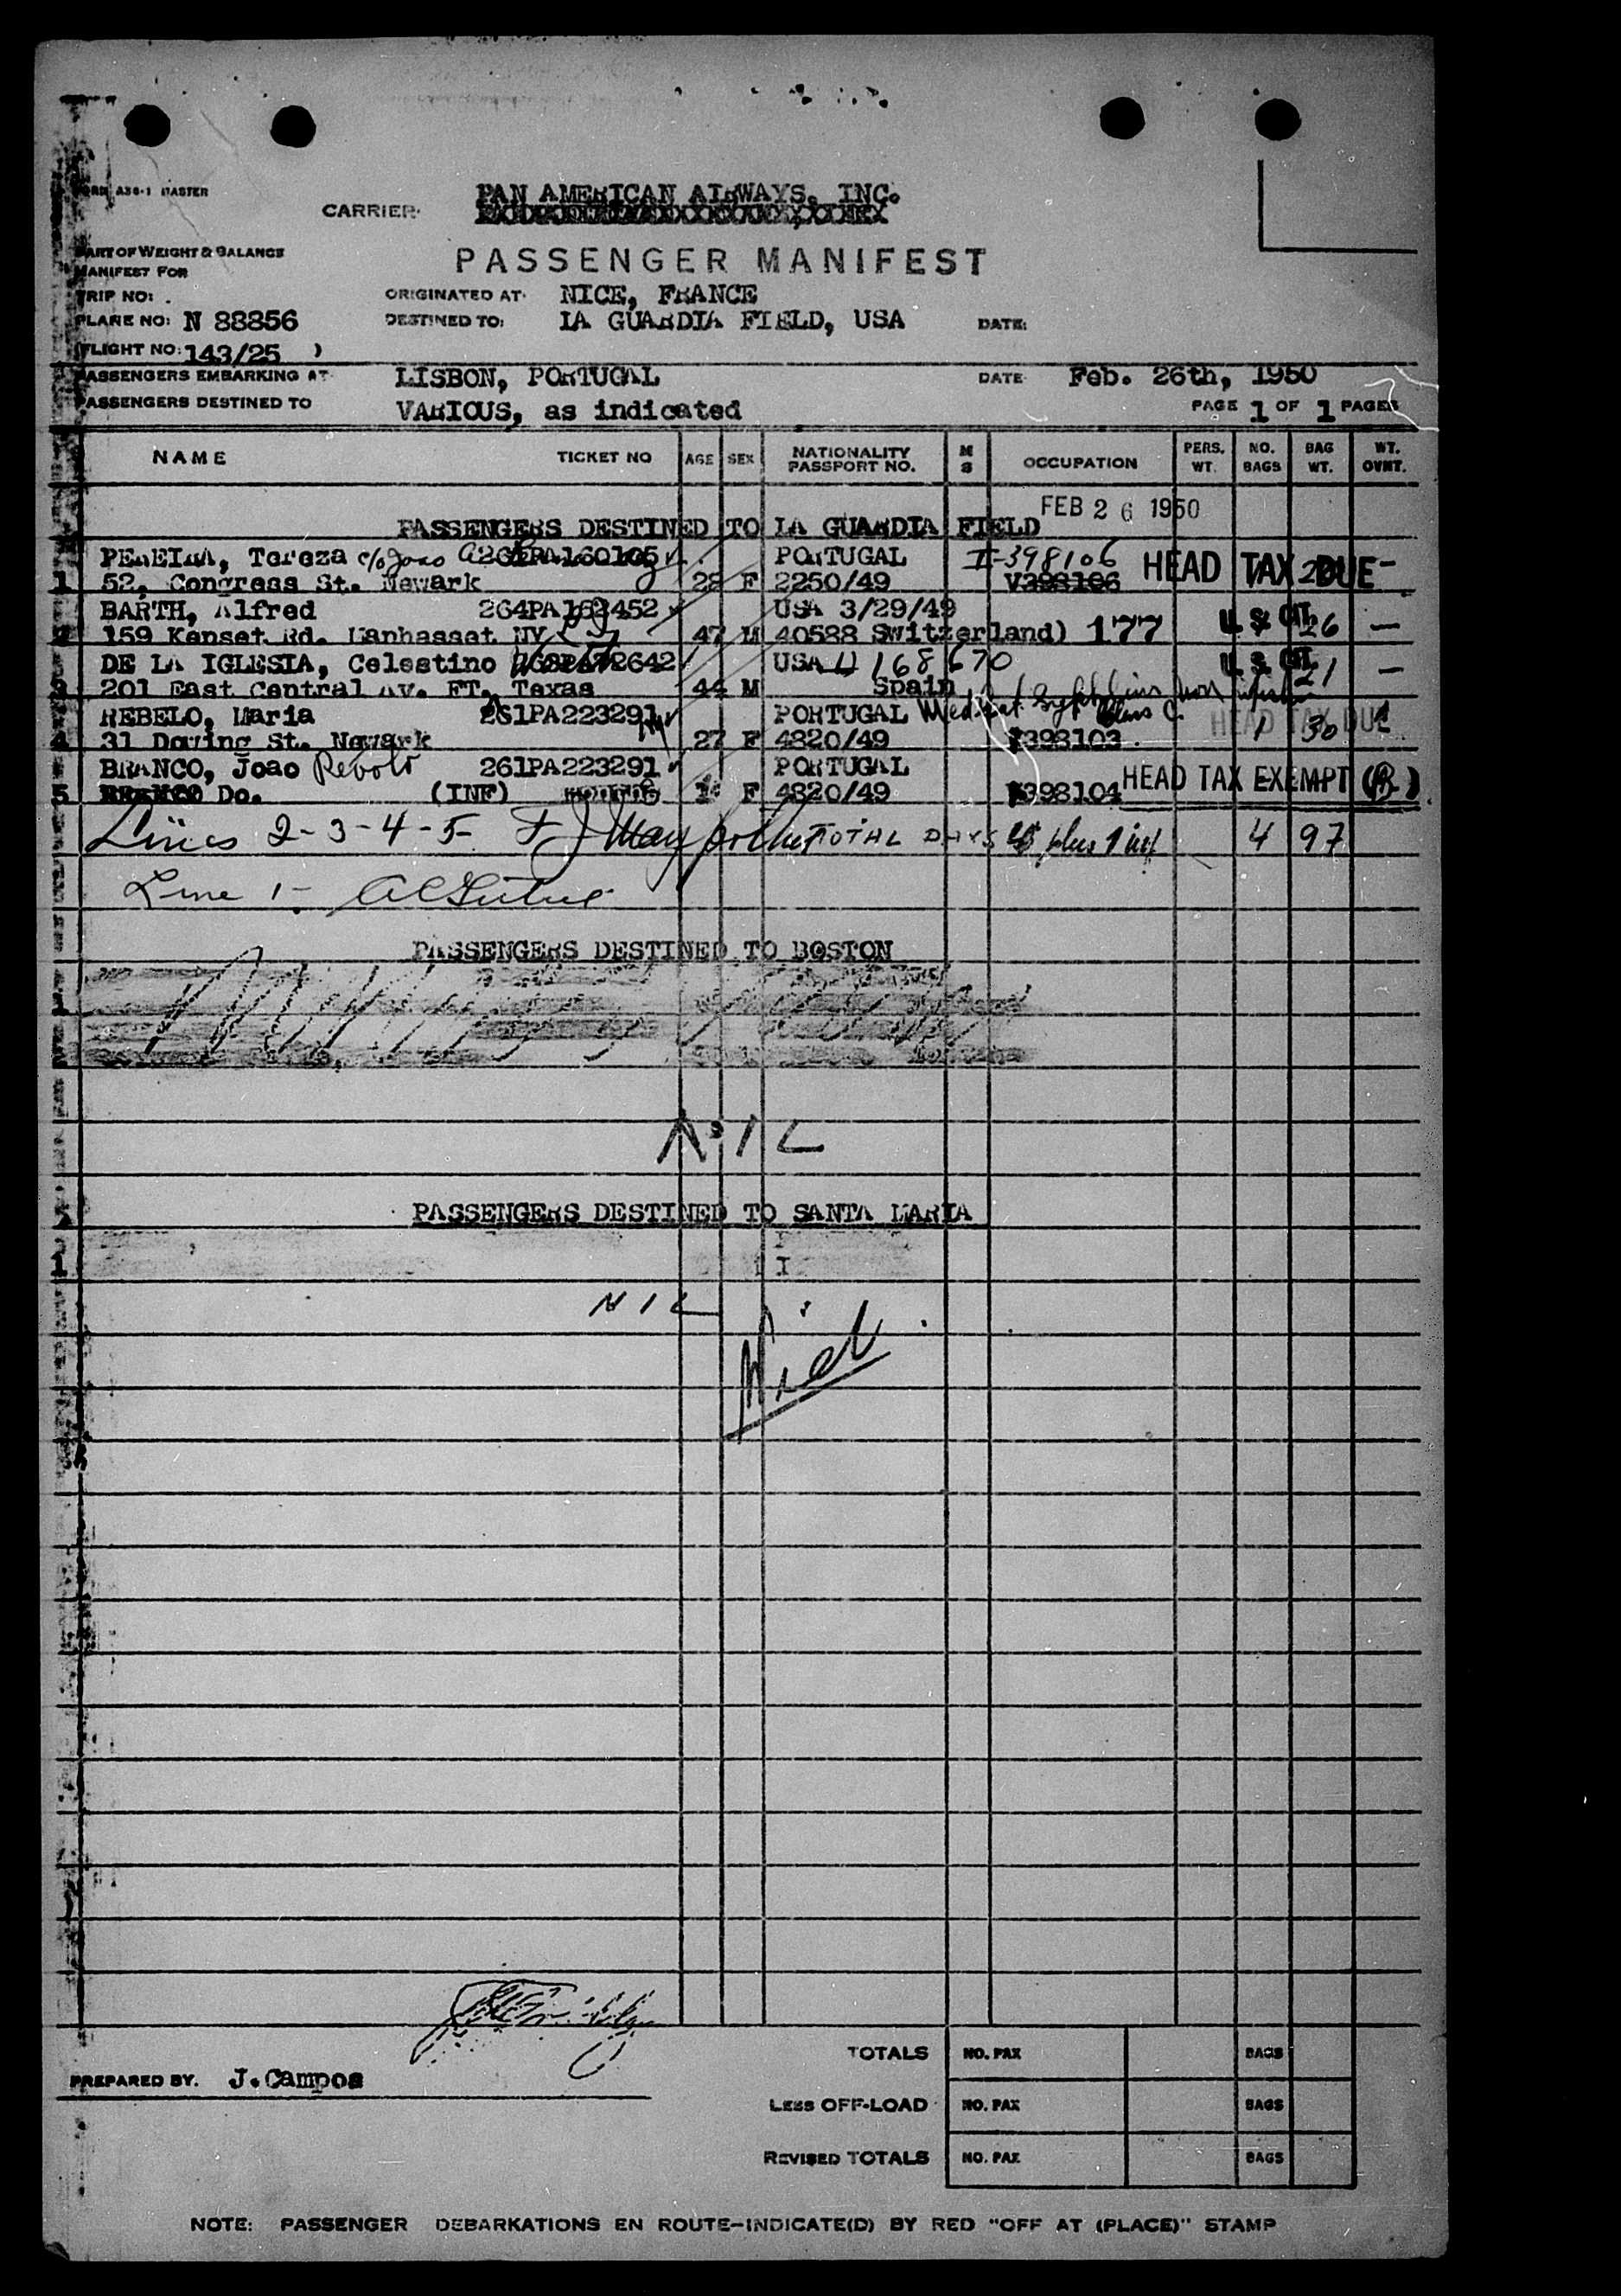 FORM A36-1 MASTER
CARRIER: PAN AMERICAN AIRWAYS, INC.
PART OF WEIGHT & BALANCE
MANIFEST FOR
PASSENGER MANIFEST
TRIP NO: .
ORIGINATED AT: NICE, FRANCE
PLANE NO: N 88856
DESTINED TO: LA GUARDIA FIELD, USA DATE:
(FLIGHT NO: 143/25 )
PASSENGERS EMBARKING AT: LISBON, PORTUGAL DATE Feb. 26th, 1950
PASSENGERS DESTINED TO VARIOUS, as indicated PAGE 1 OF 1 PAGES
NAME TICKET NO AGE SEX NATIONALITY PASSPORT NO. M S OCCUPATION PERS. WT. NO. BAGS BAG WT. WT. OVNT.
FEB 26 1950
PASSENGERS DESTINED TO LA GUARDIA FIELD
PEREIRA, Tereza c/o Joao 264PA160105 PORTUGAL I-398106 HEAD TAX DUE -
1 52, Congress St. Newark 28 F 2250/49 V398106
BARTH, Alfred 264PA163452 USA 3/29/49 U S CIT.
2 159 Kenset Rd. Manhasset NY 47 M 40588 Switzerland) 177 26 —
DE LA IGLESIA, Celestino Worth USA 168670 U S CIT.
3 201 East Central Av. FT. Texas 44 M Spain 21 —
REBELO, Maria 261PA223291 PORTUGAL Med. Cert. Class C HEAD TAX DUE
4 31 Downing St. Newark 27 F 4820/49 398103 1 30
BRANCO, Joao 261PA223291 PORTUGAL
5 Do. (INF) F 4820/49 398104 HEAD TAX EXEMPT (R)
Lines 2-3-4-5- TOTAL plus 1 inf 4 97
Line 1-
PASSENGERS DESTINED TO BOSTON
1
NIL
PASSENGERS DESTINED TO SANTA MARIA
1
NIL
TOTALS NO. PAX BAGS
PREPARED BY. J. Campos
LESS OFF-LOAD NO. PAX BAGS
REVISED TOTALS NO. PAX BAGS
NOTE: PASSENGER DEBARKATIONS EN ROUTE-INDICATE(D) BY RED "OFF AT (PLACE)" STAMP